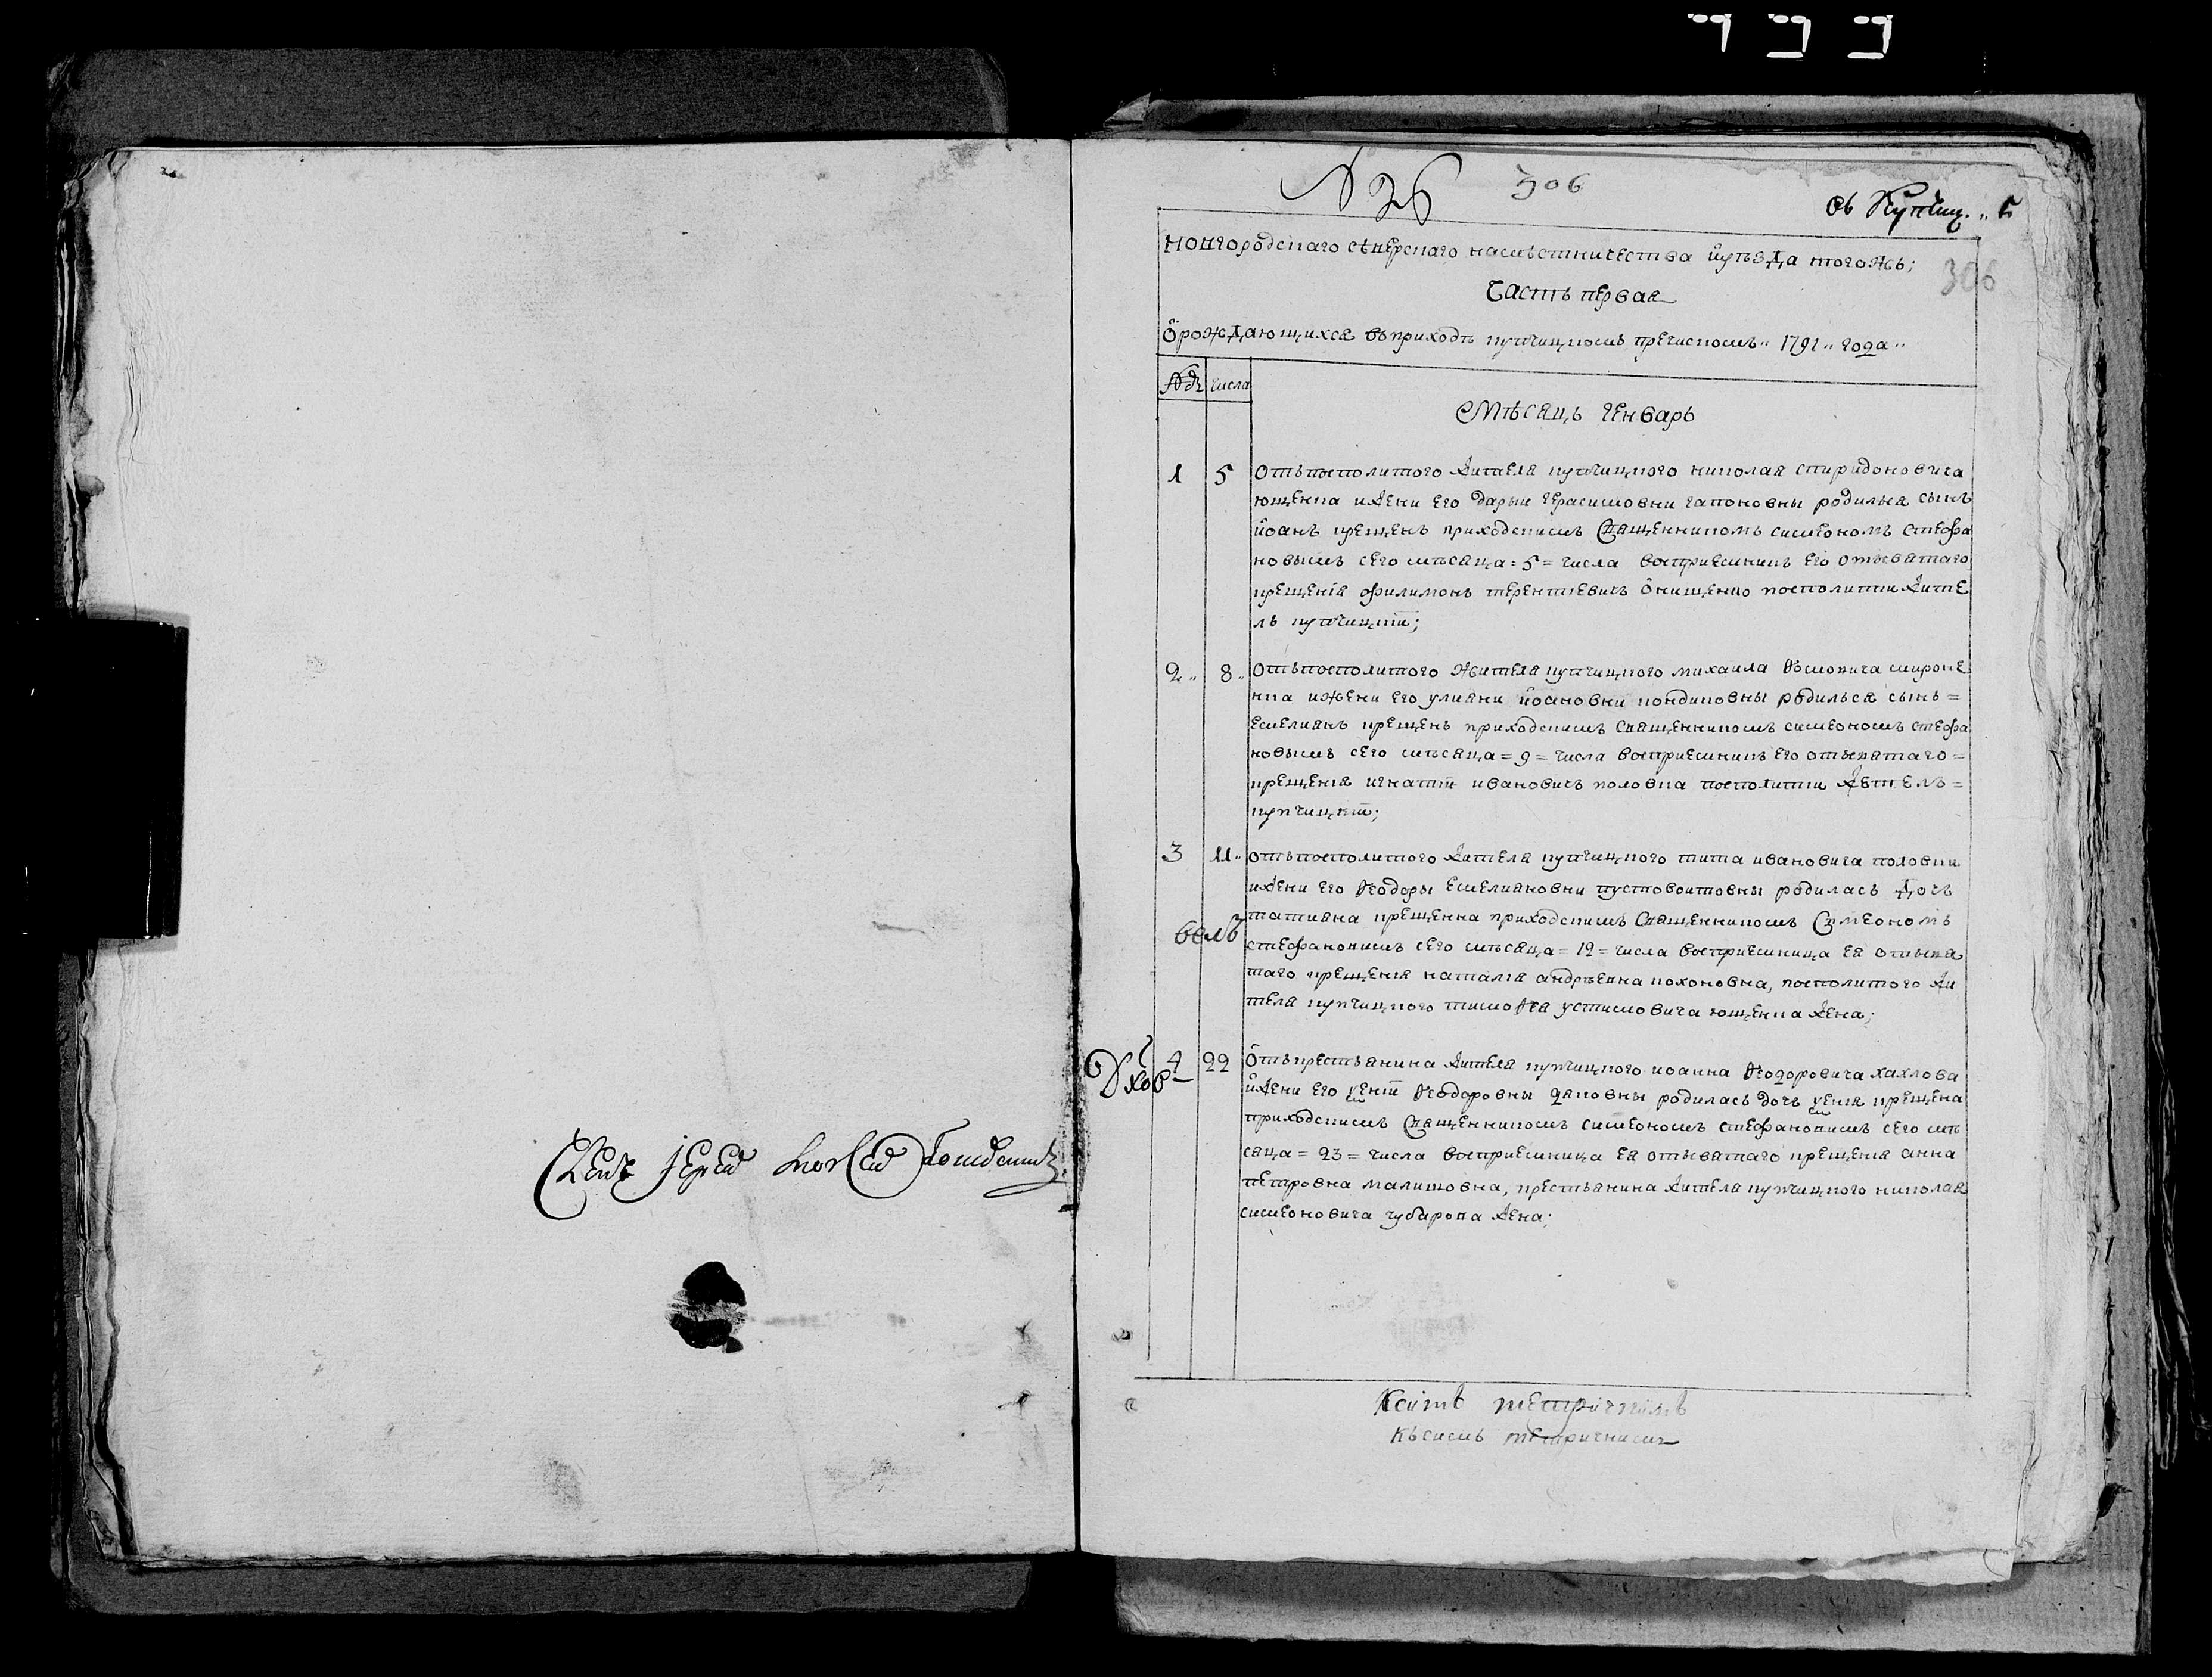 № 26 306
306
Новгородскаго сѣверскаго намѣстничества и уѣзда тогожъ;
Часть первая
О рождающихся въ приходѣ кутчицкомъ пречискомъ 1791 года
№ числа
Мѣсяцъ генварь
1 5 Отъ посполитого жителя кутчицкого николая спиридоновича
ющенка и жени его дарьи герасимовни гапоновны родился сынъ
иоанъ крещенъ приходскимъ священникомъ симеономъ стефа
новымъ сего мѣсяца = 5 = числа восприемникъ его отъ святаго
крещенія филимонъ терентіевичъ онищенко посполитіи жите
ль кутчицкій;
2 8 Отъ посполитого жителя кутчицкого михаила смироне
нка и жени его улияни иоановни кондиковны родилься сынъ =
емелианъ крещенъ приходскимъ священникомъ симеономъ стефа
новымъ сего мѣсяца = 9 = числа восприемникъ его отъ святаго =
крещенія игнатій ивановичъ половка посполитіи житель =
кутчицкій;
3 11 отъ посполитого жителя кутчицкого тита ивановича половки
и жени его ѳеодоры емелияновни пустовоитовны родилась дочъ
татияна крещенна приходскимъ священникомъ симеономъ
стефановимъ сего мѣсяца = 12 = числа восприемница ея отъ свя
таго крещенія наталія андрѣевна кохоновна, посполитого жи
теля кутчицкого тимоѳея устимовича ющенка жена;
4 22 Отъ крестьянина жителя кутчицкого иоанна ѳеодоровича хахлова
и жени его ѳеодоровны родилась дочь крещена
приходскимъ священникомъ симеономъ стефановимъ сего мѣ
сяца = 23 = числа восприемница ея отъ святаго крещенія анна
петровна малишовна, крестьянина жителя кутчицкого николая
симеоновича чубарова жена;
Членъ Іерей